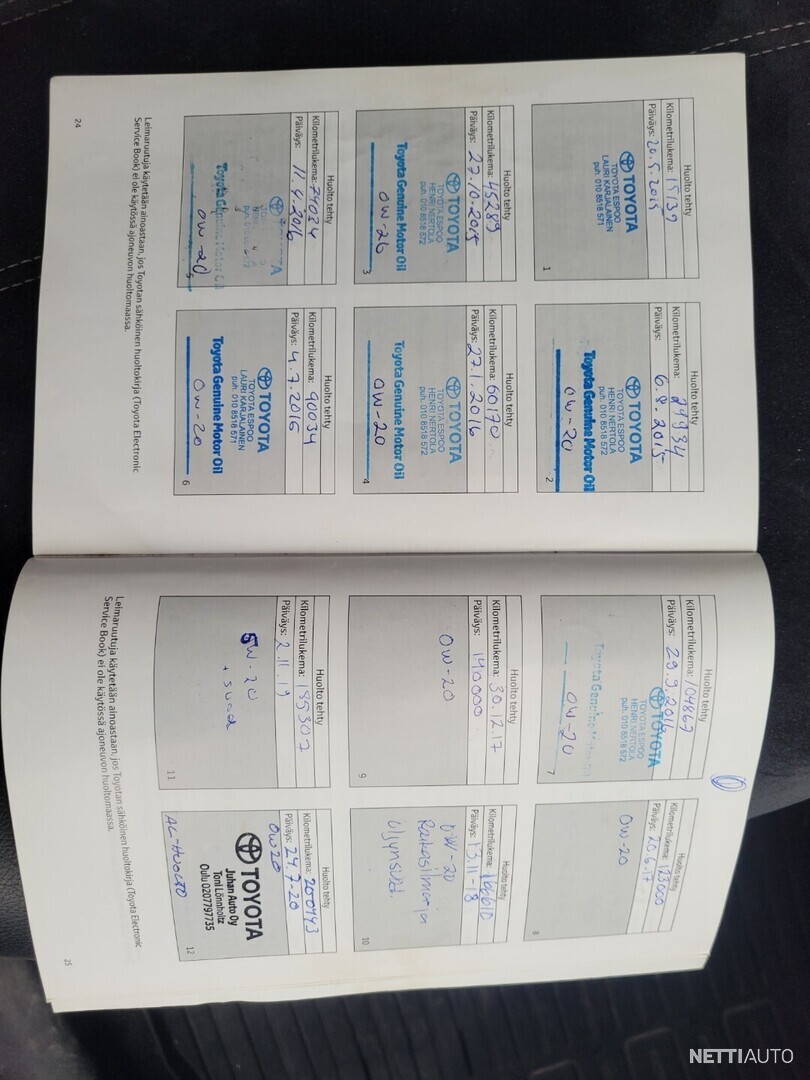 Huolto tehty
Kilometrilukema: 15139
Päiväys: 20.5.2015
TOYOTA
TOYOTA ESPOO
LAURI KARJALAINEN
puh. 010 8518 571
1
Huolto tehty
Kilometrilukema: 29934
Päiväys: 6.8.2015
TOYOTA
TOYOTA ESPOO
HENRI NERTOLA
puh. 010 8518 572
Toyota Genuine Motor Oil
0W-20
2
Huolto tehty
Kilometrilukema: 45289
Päiväys: 27.10.2015
TOYOTA
TOYOTA ESPOO
HENRI NERTOLA
puh. 010 8518 572
Toyota Genuine Motor Oil
0W-20
3
Huolto tehty
Kilometrilukema: 60170
Päiväys: 27.1.2016
TOYOTA
TOYOTA ESPOO
HENRI NERTOLA
puh. 010 8518 572
Toyota Genuine Motor Oil
0W-20
4
Huolto tehty
Kilometrilukema: 74034
Päiväys: 11.4.2016
Toyota Genuine Motor Oil
0W-20
5
Huolto tehty
Kilometrilukema: 90034
Päiväys: 4.7.2016
TOYOTA
TOYOTA ESPOO
LAURI KARJALAINEN
puh. 010 8518 571
Toyota Genuine Motor Oil
0W-20
6
Leimaruutuja käytetään ainoastaan, jos Toyotan sähköinen huoltokirja (Toyota Electronic
Service Book) ei ole käytössä ajoneuvon huoltomaassa.
24
Huolto tehty
Kilometrilukema: 104867
Päiväys: 29.9.2016
TOYOTA
TOYOTA ESPOO
HENRI NERTOLA
puh. 010 8518 572
Toyota Genuine Motor Oil
0W-20
7
Huolto tehty
Kilometrilukema: 123000
Päiväys: 20.6.17
0W-20
8
Huolto tehty
Kilometrilukema: 30.12.17
Päiväys: 140000
0W-20
9
Huolto tehty
Kilometrilukema:
Päiväys: 13.11-18
0W-20
10
Huolto tehty
Kilometrilukema: 185307
Päiväys: 2.11.19
5W-20
11
Huolto tehty
Kilometrilukema: 200943
Päiväys: 24.7-20
0W20
TOYOTA
Juhan Auto Oy
Toni Lönnholtz
Oulu 0207797735
AC-HUOLTO
12
Leimaruutuja käytetään ainoastaan, jos Toyotan sähköinen huoltokirja (Toyota Electronic
Service Book) ei ole käytössä ajoneuvon huoltomaassa.
25
NETTIAUTO